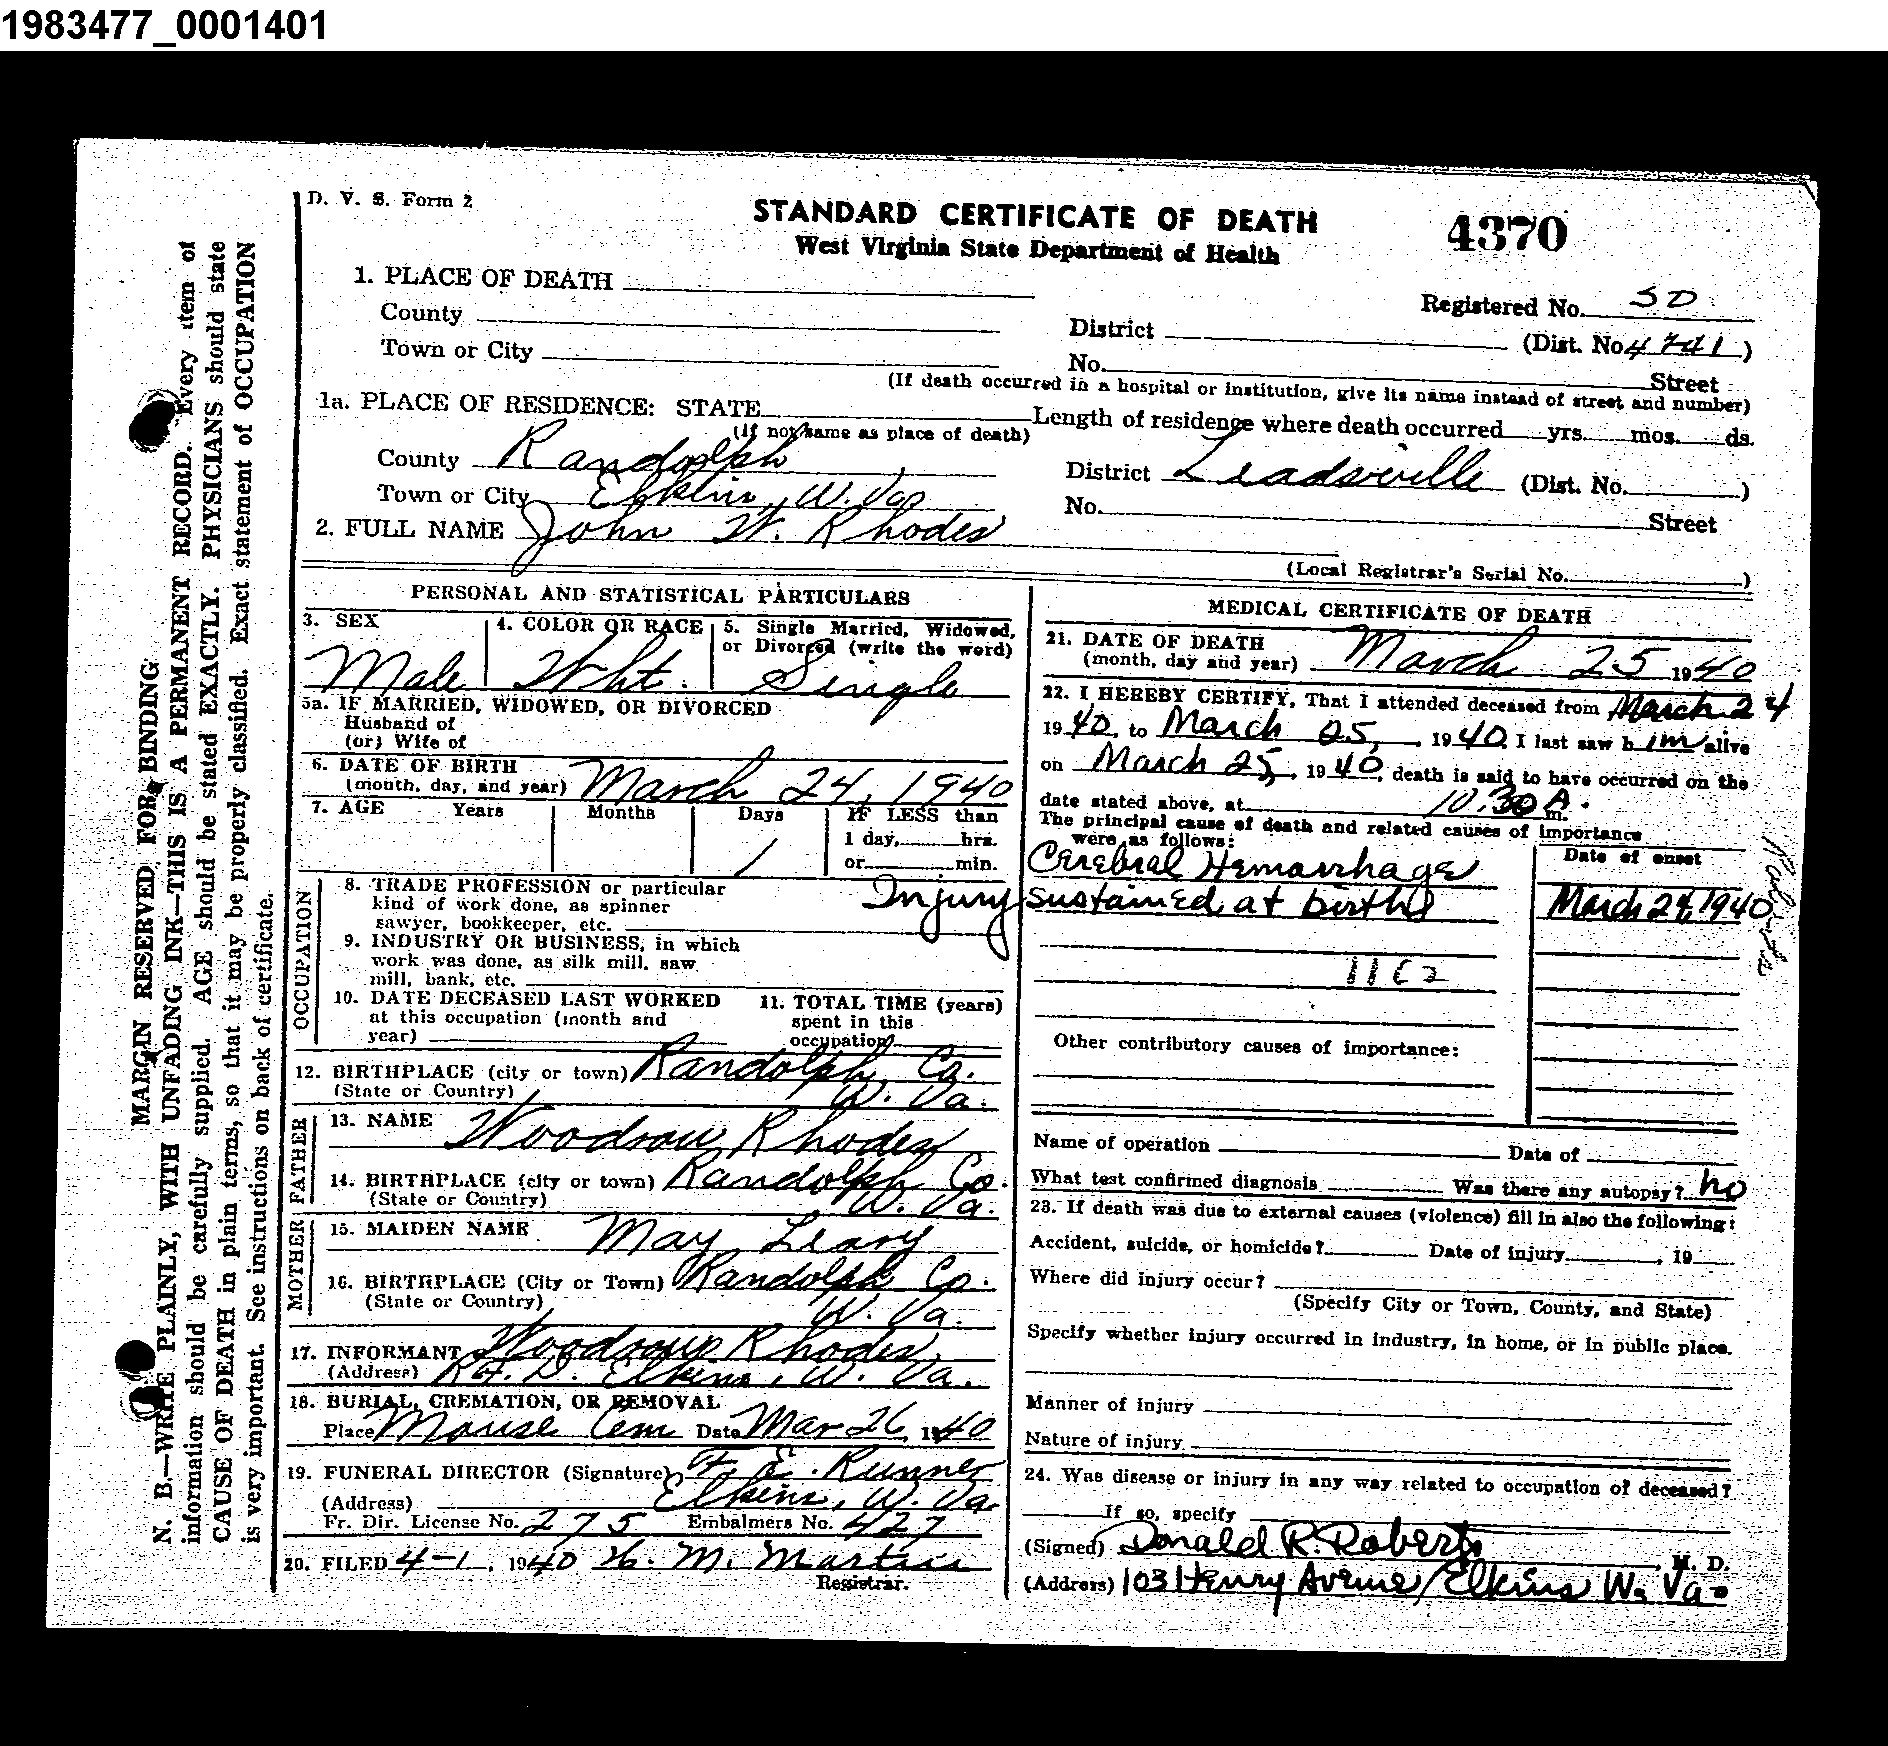 1983477_0001401
D. V. S. Form 2
STANDARD CERTIFICATE OF DEATH
West Virginia State Department of Health
4370
1. PLACE OF DEATH
Registered No. 50
County
District
(Dist. No 4741)
Town or City
No. Street
(If death occurred in a hospital or institution, give its name instead of street and number)
1a. PLACE OF RESIDENCE: STATE
Length of residence where death occurred yrs. mos. ds.
(If not same as place of death)
County Randolph
District Leadsville (Dist. No. )
Town or City Elkins, W. Va.
No. Street
2. FULL NAME John W. Rhodes
(Local Registrar's Serial No. )
PERSONAL AND STATISTICAL PARTICULARS
3. SEX
Male
4. COLOR OR RACE
Wht.
5. Single Married, Widowed,
or Divorced (write the word)
Single
5a. IF MARRIED, WIDOWED, OR DIVORCED
Husband of
(or) Wife of
6. DATE OF BIRTH
(month, day, and year) March 24, 1940
7. AGE Years Months Days IF LESS than
1 day, hrs.
or min.
1
8. TRADE PROFESSION or particular
kind of work done, as spinner
sawyer, bookkeeper, etc.
9. INDUSTRY OR BUSINESS, in which
work was done, as silk mill, saw
mill, bank, etc.
10. DATE DECEASED LAST WORKED
at this occupation (month and
year)
11. TOTAL TIME (years)
spent in this
occupation
OCCUPATION
12. BIRTHPLACE (city or town) Randolph Co.
(State or Country) W. Va.
FATHER
13. NAME Woodrow Rhodes
14. BIRTHPLACE (city or town) Randolph Co.
(State or Country) W. Va.
MOTHER
15. MAIDEN NAME May Leary
16. BIRTHPLACE (City or Town) Randolph Co.
(State or Country) W. Va.
17. INFORMANT Woodrow Rhodes
(Address) Elkins, W. Va.
18. BURIAL, CREMATION, OR REMOVAL
Place Mouse Cem Date Mar 26, 1940
19. FUNERAL DIRECTOR (Signature) F. E. Runner
(Address) Elkins, W. Va.
Fr. Dir. License No. 275 Embalmers No. 427
20. FILED 4-1, 1940 H. M. Martin
Registrar.
MEDICAL CERTIFICATE OF DEATH
21. DATE OF DEATH
(month, day and year) March 25 1940
22. I HEREBY CERTIFY, That I attended deceased from March 24
1940, to March 25, 1940. I last saw him alive
on March 25, 1940, death is said to have occurred on the
date stated above, at 10:30 A. m.
The principal cause of death and related causes of importance
were as follows:
Date of onset
Cerebral Hemarrhage
Injury sustained at birth March 24, 1940
Other contributory causes of importance:
Name of operation Date of
What test confirmed diagnosis Was there any autopsy? no
23. If death was due to external causes (violence) fill in also the following:
Accident, suicide, or homicide? Date of injury , 19
Where did injury occur?
(Specify City or Town, County, and State)
Specify whether injury occurred in industry, in home, or in public place.
Manner of injury
Nature of injury
24. Was disease or injury in any way related to occupation of deceased?
If so, specify
(Signed) Donald R. Roberts, M. D.
(Address) 103 Henry Avenue, Elkins W. Va.
MARGIN RESERVED FOR BINDING
N. B.—WRITE PLAINLY, WITH UNFADING INK—THIS IS A PERMANENT RECORD. Every item of
information should be carefully supplied. AGE should be stated EXACTLY. PHYSICIANS should state
CAUSE OF DEATH in plain terms, so that it may be properly classified. Exact statement of OCCUPATION
is very important. See instructions on back of certificate.